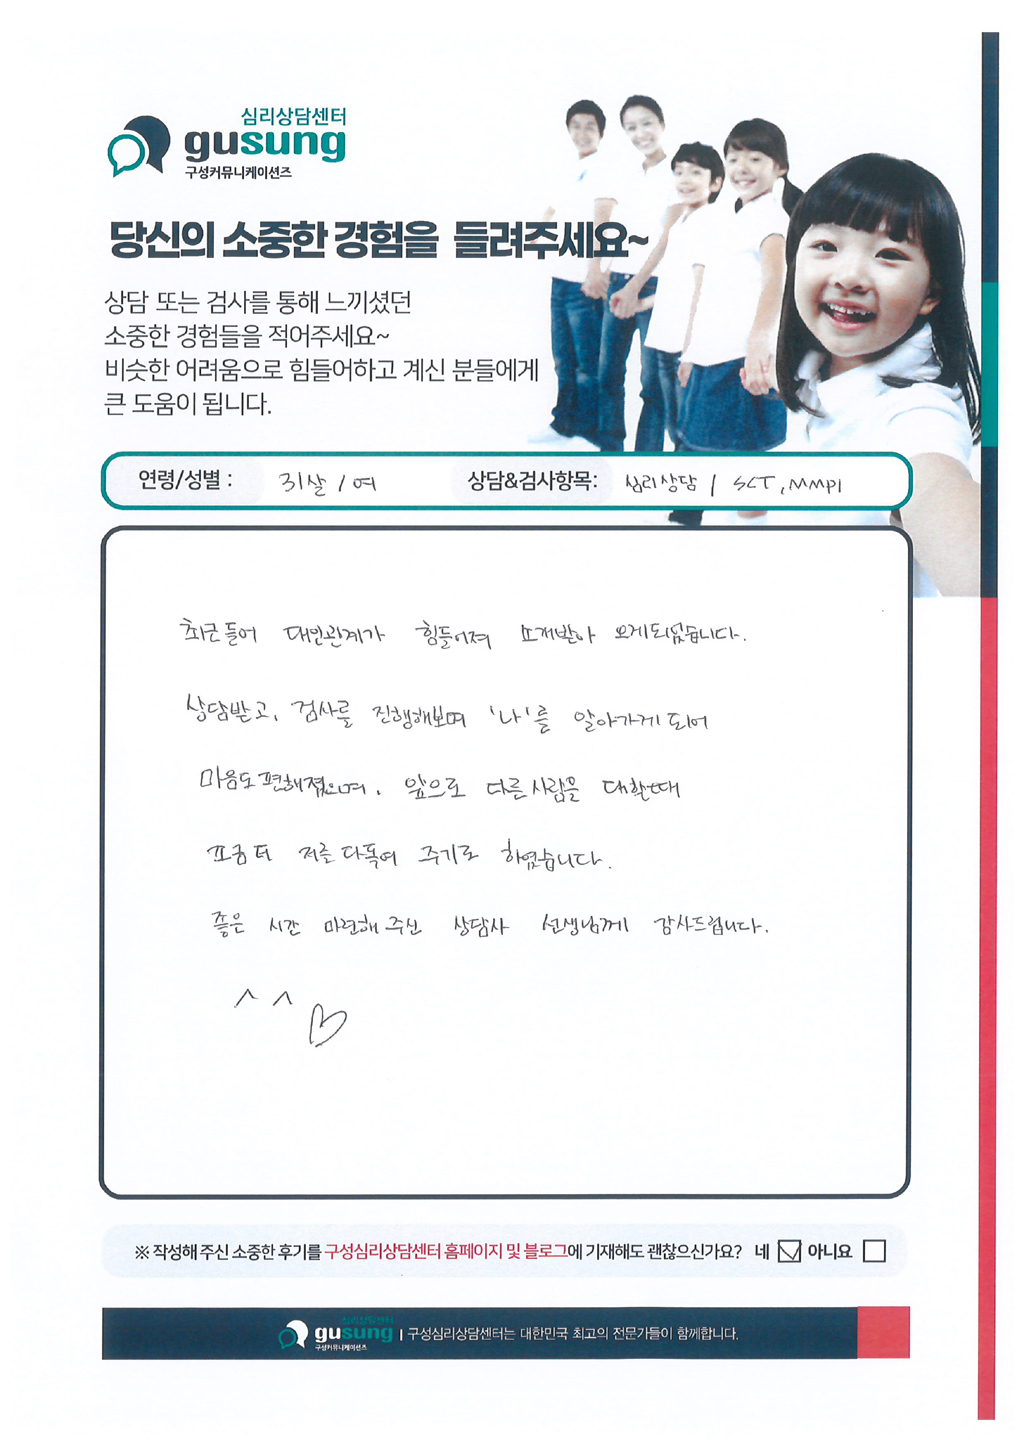 심리상담센터
gusung
구성커뮤니케이션즈
당신의 소중한 경험을 들려주세요~
상담 또는 검사를 통해 느끼셨던
소중한 경험들을 적어주세요~
비슷한 어려움으로 힘들어하고 계신 분들에게
큰 도움이 됩니다.
연령/성별 : 31살 / 여 상담&검사항목: 심리상담 / SCT, MMPI
최근들어 대인관계가 힘들어져 소개받아 오게되었습니다.
상담받고, 검사를 진행해보며 '나'를 알아가게 되어
마음도 편해졌으며, 앞으로 다른사람을 대할때
조금 더 저를 다독여 주기로 하였습니다.
좋은 시간 마련해 주신 상담사 선생님께 감사드립니다.
^ ^ ♡
※ 작성해 주신 소중한 후기를 구성심리상담센터 홈페이지 및 블로그에 기재해도 괜찮으신가요? 네 ☑ 아니요 ☐
심리상담센터
gusung | 구성심리상담센터는 대한민국 최고의 전문가들이 함께합니다.
구성커뮤니케이션즈